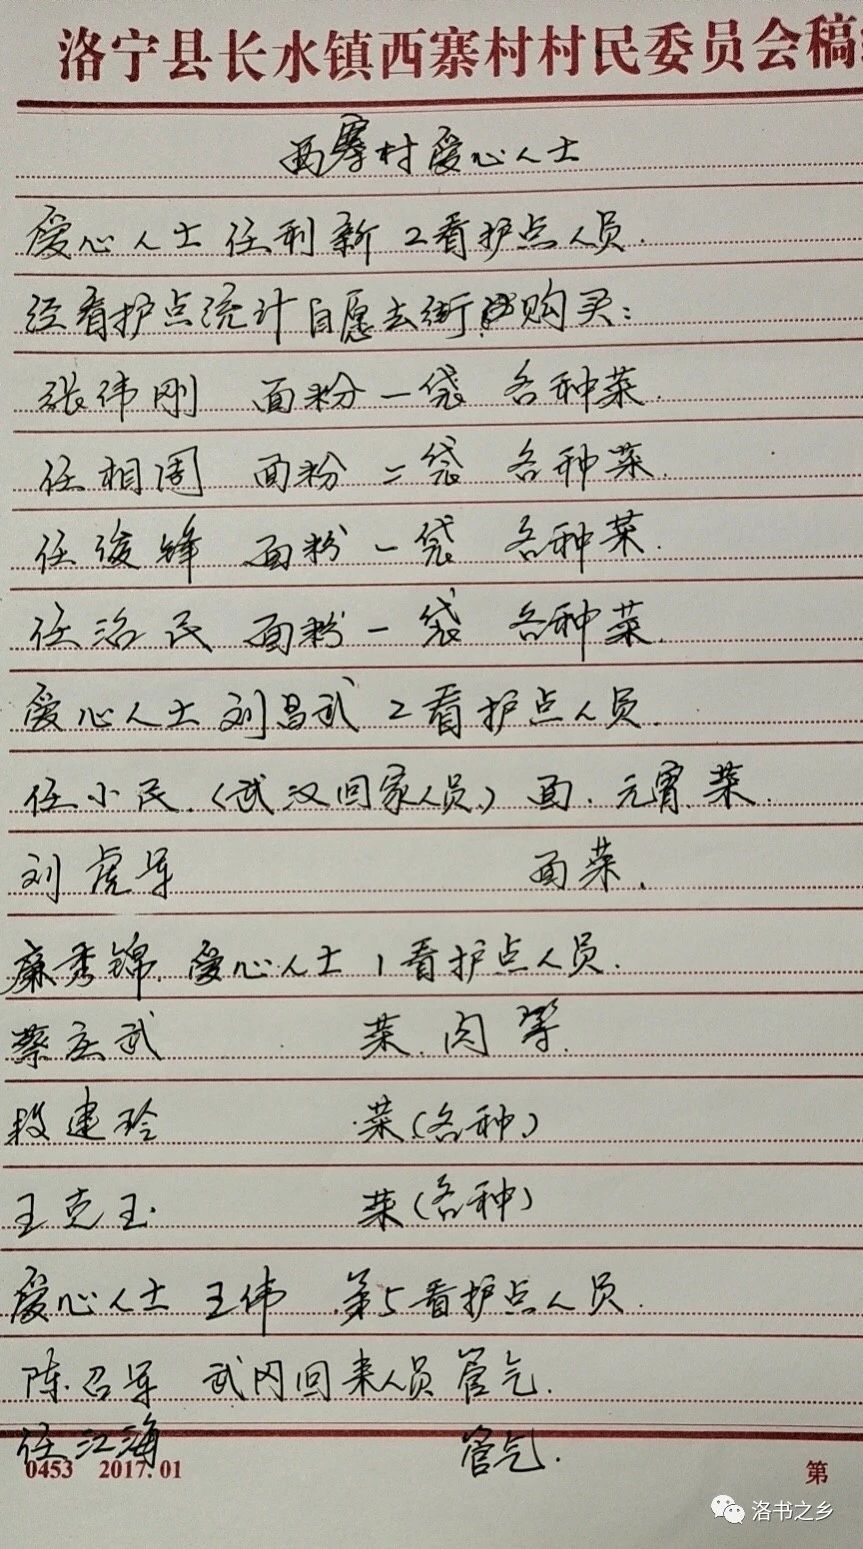 洛宁县长水镇西寨村村民委员会稿
西寨村爱心人士
爱心人士 任利新 2看护点人员.
经看护点统计自愿去街购买:
张伟刚 面粉一袋 各种菜.
任相周 面粉二袋 各种菜.
任俊锋 面粉一袋 各种菜.
任洛民 面粉一袋 各种菜.
爱心人士刘昌武 2看护点人员.
任小民.(武汉回家人员) 面.元宵.菜.
刘虎军 面菜.
廉秀锦.爱心人士 1看护点人员.
蔡庄武 菜.肉等.
段建玲 菜(各种)
王克玉. 菜(各种)
爱心人士 王伟 第5看护点人员.
陈召军 武冈回来人员
任江海
0453 2017.01 第
洛书之乡